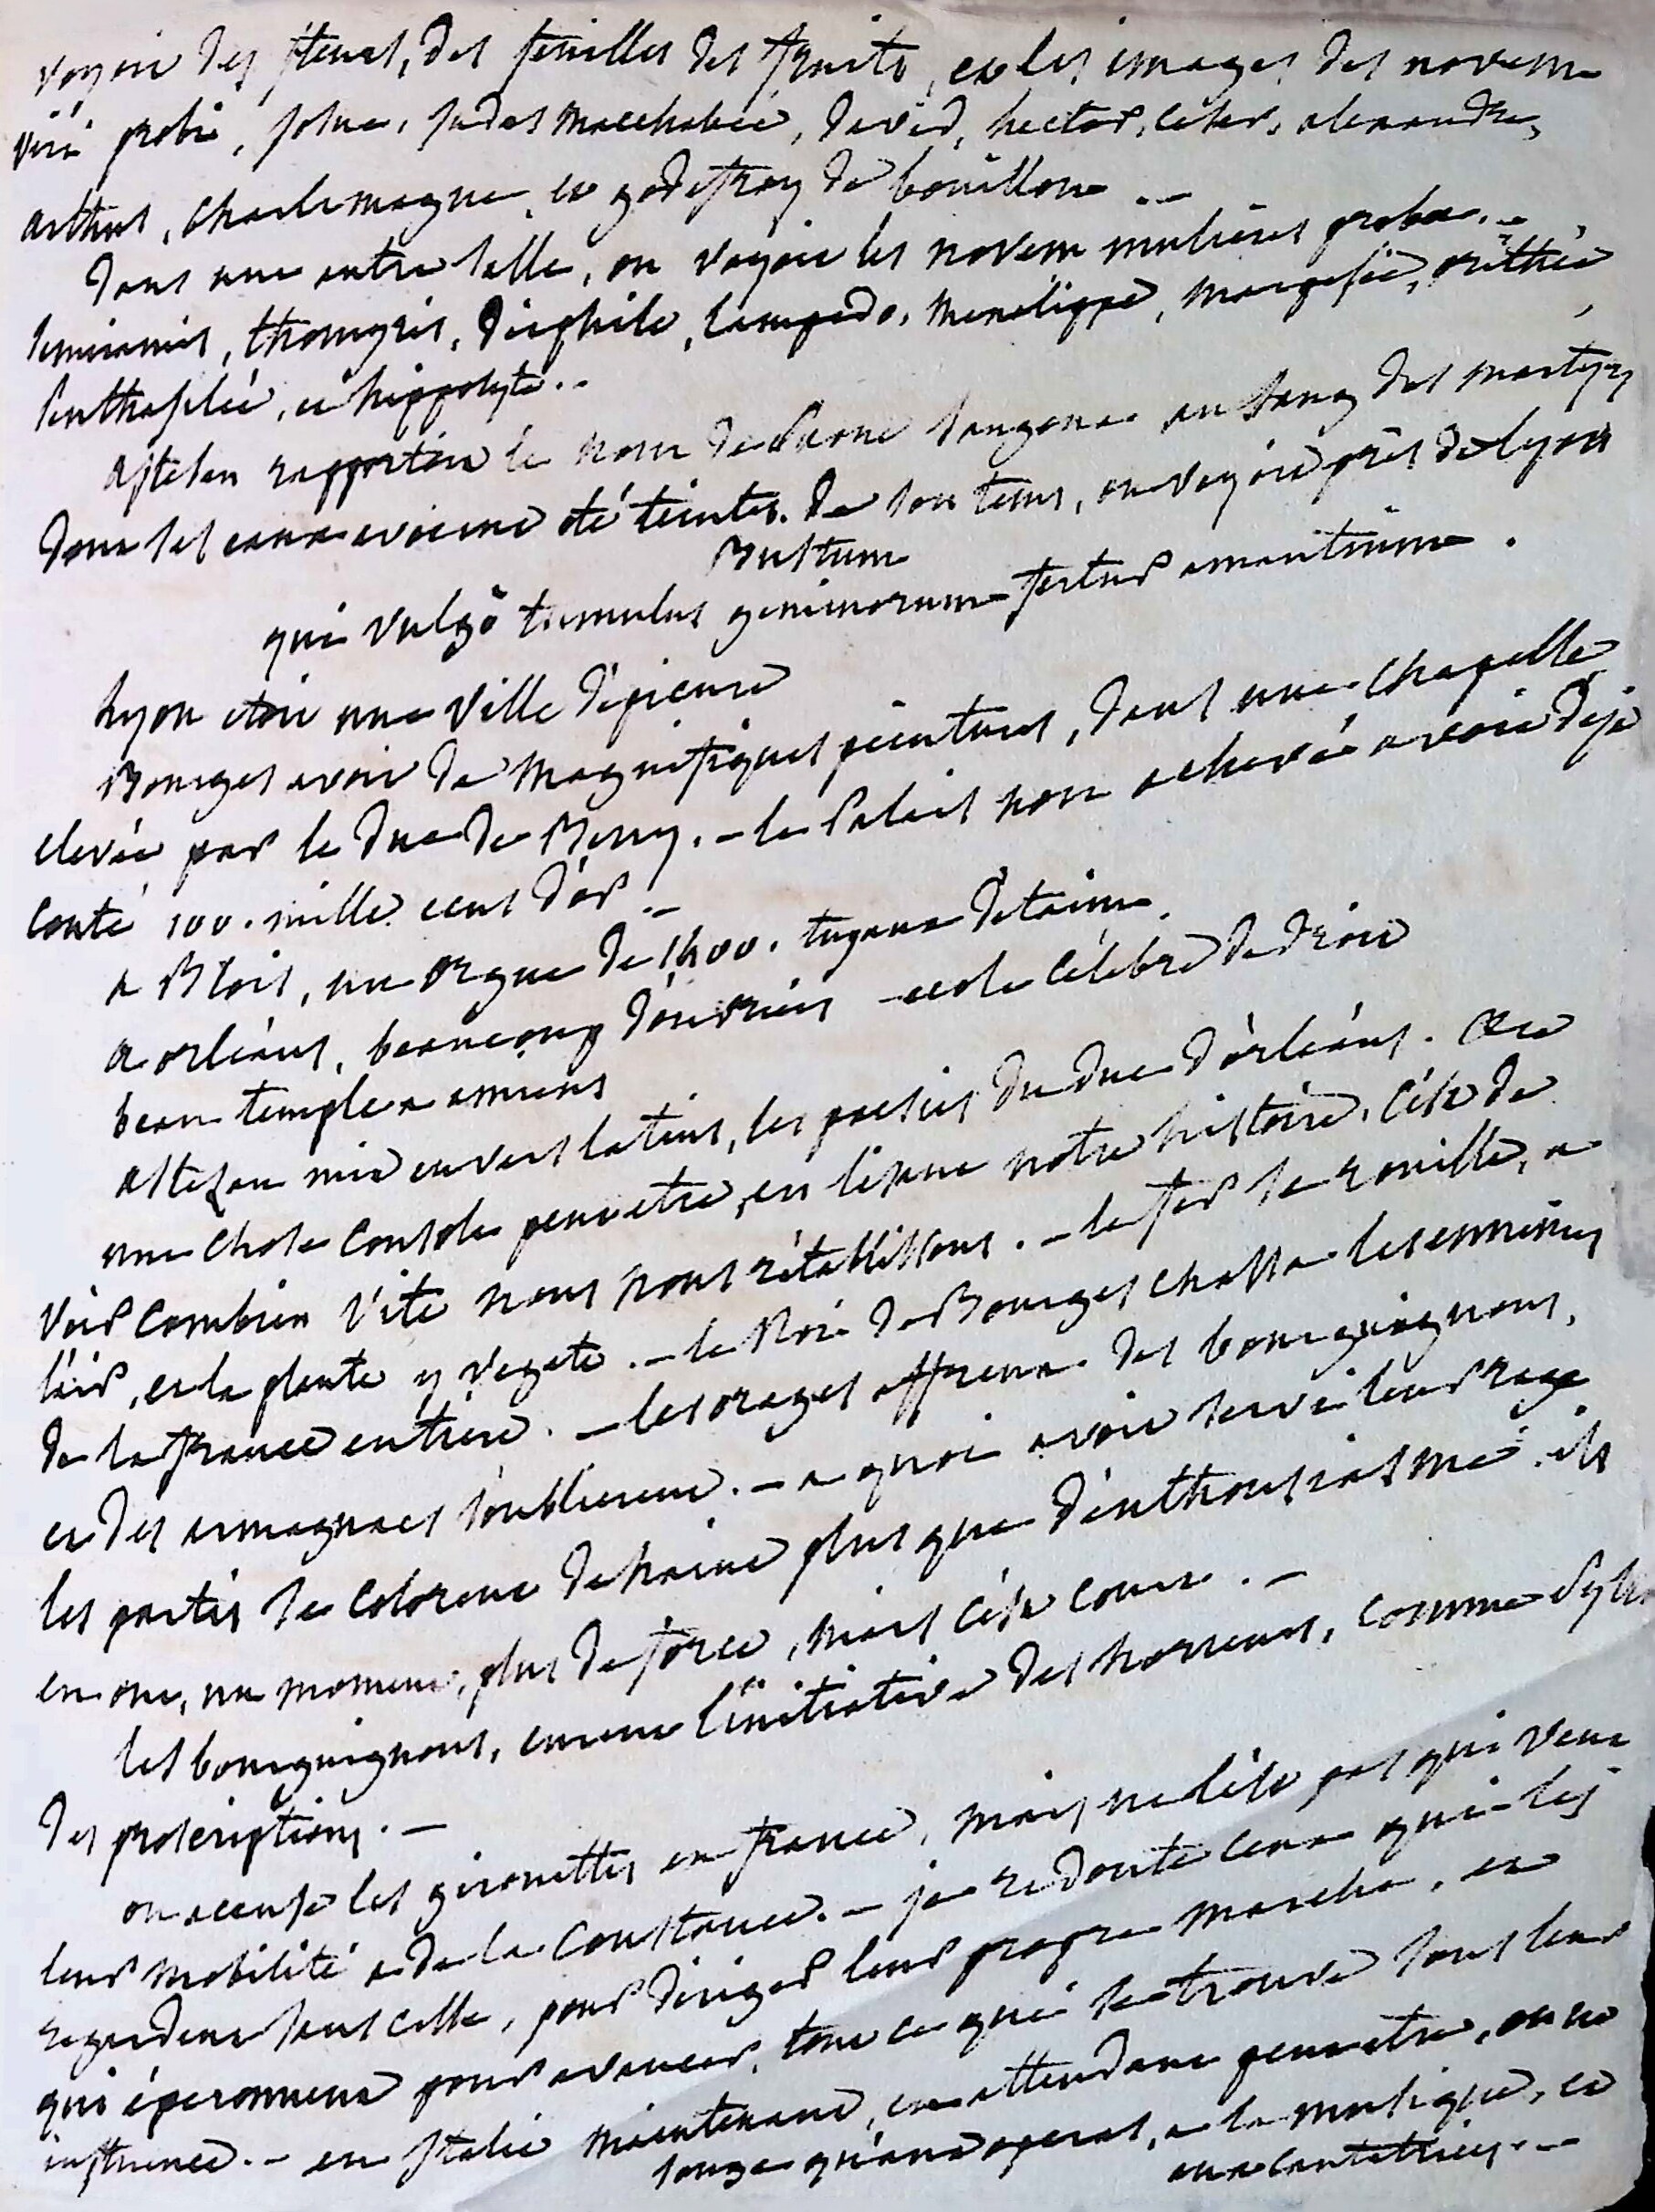 voyoit des fleurs, des feuilles des fruits, et les images des novem
viri probi, josue, judas macchabée, david, hector, césar, alexandre,
arthus, charlemagne, et godefroy de bouillon ..
dans une autre salle, on voyoit les novem mulieres probae ..
semiramis, thomyris, deiphile, lampedo, menalippe, margesie, orithie,
penthasilée, et hippolyte ..
astesan rapportoit le nom de Saone sangona au sang des martyrs
dont ses eaux avoient été teintes. de son tems, on voyoit près de lyon
Bustum
qui vulgo tumulus geminorum fertur amantium .
Lyon etoit une ville d'épicure
Bourges avoit de magnifiques peintures, dans une chapelle
elevée par le duc de Berry. – le Palais non achevé avoit déjà
couté 100. mille ecus d'or –
a Blois, un orgue de 1400. tuyaux d'étain.
a orléans, beaucoup d'ouvriers – ecole célèbre de droit
beau temple a amiens
astesan mit en vers latins, les poesies du duc d'orléans.
une chose console peut etre, en lisant notre histoire, c'est de
voir combien vite nous nous rétablissons. – le fer se rouille, a
l'air, et la plante y végete. – le Roi de Bourges chassa les ennemis
de la france entiere. – les orages affreux des bourguignons,
et des armagnacs s'oublierent. – a quoi avoit servi leur rage
les partis se colorent de haine plus que d'enthousiasme. ils
en ont, un moment, plus de force, mais c'est court. –
les bourguignons, eurent l'initiative des horreurs, comme Sylla
des proscriptions. –
on accuse les girouettes en france, mais ne l'est pas qui veut
leur mobilité a de la constance. – je redoute ceux qui les
regardent sans cesse, pour diriger leur propre marche, et
qui éperonnent pour avancer, tout ce qui se trouve sous leur
influence. – en Italie maintenant, en attendant peut etre, on ne
songe qu'aux operas, a la musique, et
aux cantatrices. –